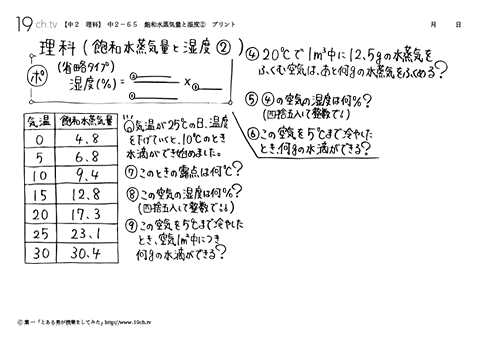 19ch.tv 【中2 理科】 中2-65 飽和水蒸気量と湿度② プリント 月 日
理科(飽和水蒸気量と湿度②)
ポ (省略タイプ)
湿度(%)= ① ② × ③
気温 飽和水蒸気量
0 4.8
5 6.8
10 9.4
15 12.8
20 17.3
25 23.1
30 30.4
④20℃で1m³中に12.5gの水蒸気を
ふくむ空気は、あと何gの水蒸気をふくめる?
⑤④の空気の湿度は何%?
(四捨五入して整数で)
⑥この空気を5℃まで冷やした
とき、何gの水滴ができる?
気温が25℃の日、湿度
を下げていくと、10℃のとき
水滴ができ始めました。
⑦このときの露点は何℃?
⑧この空気の湿度は何%?
(四捨五入して整数で)
⑨この空気を5℃まで冷やした
とき、空気1m³中につき
何gの水滴ができる?
© 葉一「とある男が授業をしてみた」http://www.19ch.tv